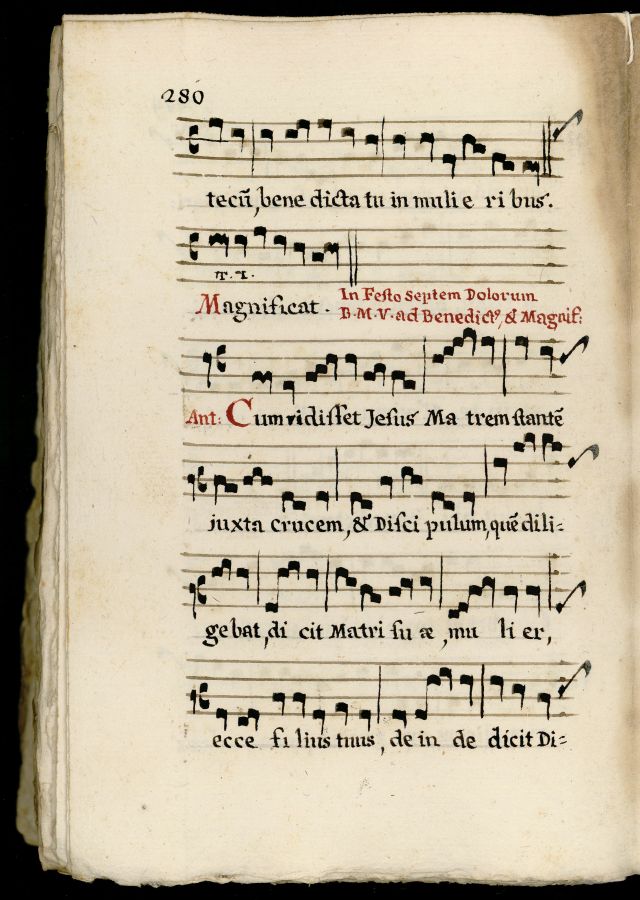 280
tecū, bene dicta tu in mulie ribus.
π. τ.
Magnificat. In Festo Septem Dolorum
B. M. V. ad Benedict9, & Magnif:
Ant: Cum vidisset Jesus Ma trem stantē
juxta crucem, & Disci pulum, quē dili=
gebat, di cit Matri su æ, mu li er,
ecce fi lius tuus, de in de dicit Di=